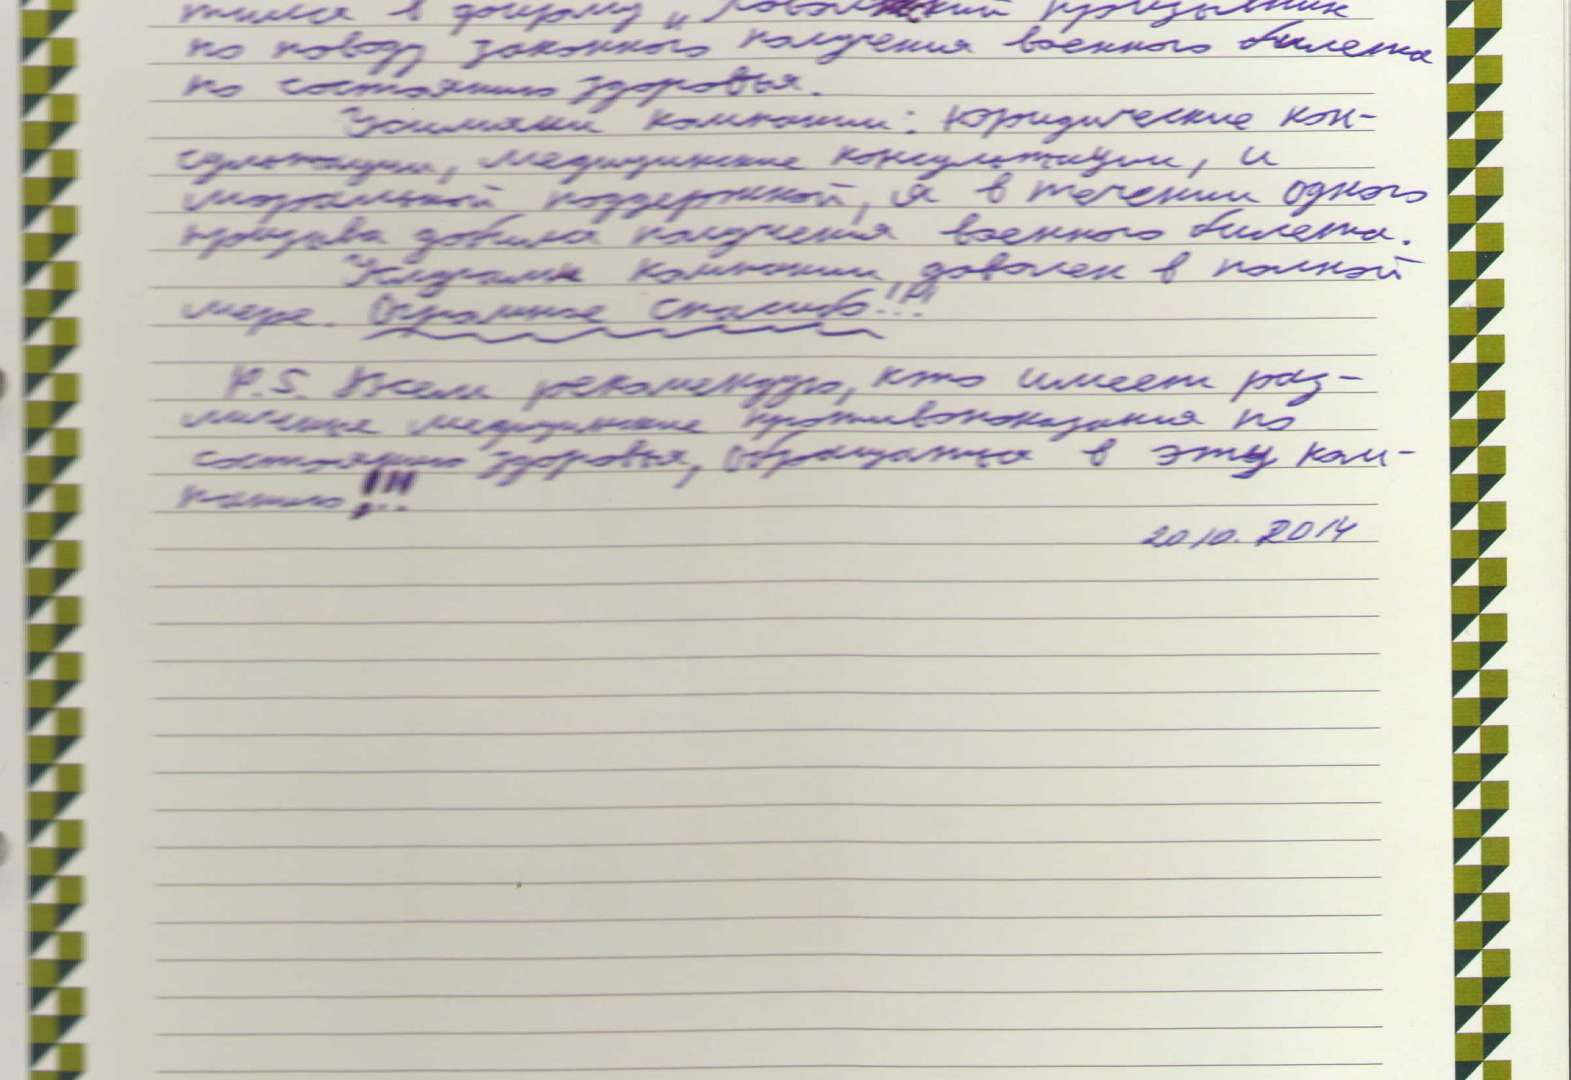 тился в фирму "Поволжский призывник
по поводу законного получения военного билета
по состоянию здоровья.
Усилиями компании: юридические кон-
сультации, медицинские консультации, и
моральной поддержкой, я в течении одного
призыва добился получения военного билета.
Услугами компании доволен в полной
мере. Огромное спасибо!!!
P.S. Всем рекомендую, кто имеет раз-
личные медицинские противопоказания по
состоянию здоровья, обращаться в эту ком-
панию!!!
20.10.2014